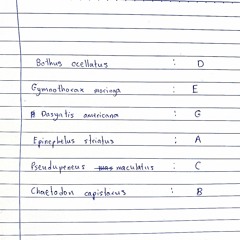 Bothus ocellatus : D
Gymnothorax moringa : E
Dasyatis americana : G
Epinephelus striatus : A
Pseudupeneus maculatus : C
Chaetodon capistacus : B